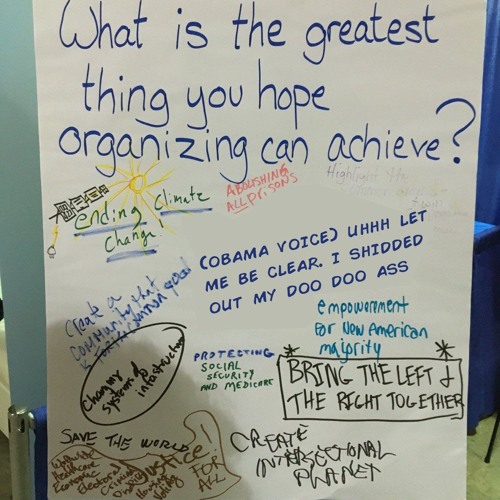 What is the greatest
thing you hope
organizing can achieve?
ending climate
change!
ABOLISHING
ALL PRISONS
Highlight the
(OBAMA VOICE) UHHH LET
ME BE CLEAR. I SHIDDED
OUT MY DOO DOO ASS
Create a
community that
is for the common good
empowerment
for New American
majority
PROTECTING
SOCIAL
SECURITY
AND MEDICARE
Changing
systems &
infrastructure
BRING THE LEFT &
THE RIGHT TOGETHER
SAVE THE WORLD!
Healthcare
Economic
Electoral
Criminal
JUSTICE!
FOR
ALL
CREATE
INTERSECTIONAL
PLANET